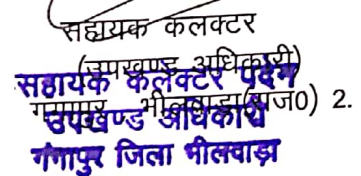 सहायक कलक्टर
(उपखण्ड अधिकारी)
सहायक कलेक्टर पदेन
गंगापुर भीलवाड़ा(राज0) 2.
उपखण्ड अधिकारी
गंगापुर जिला भीलवाड़ा